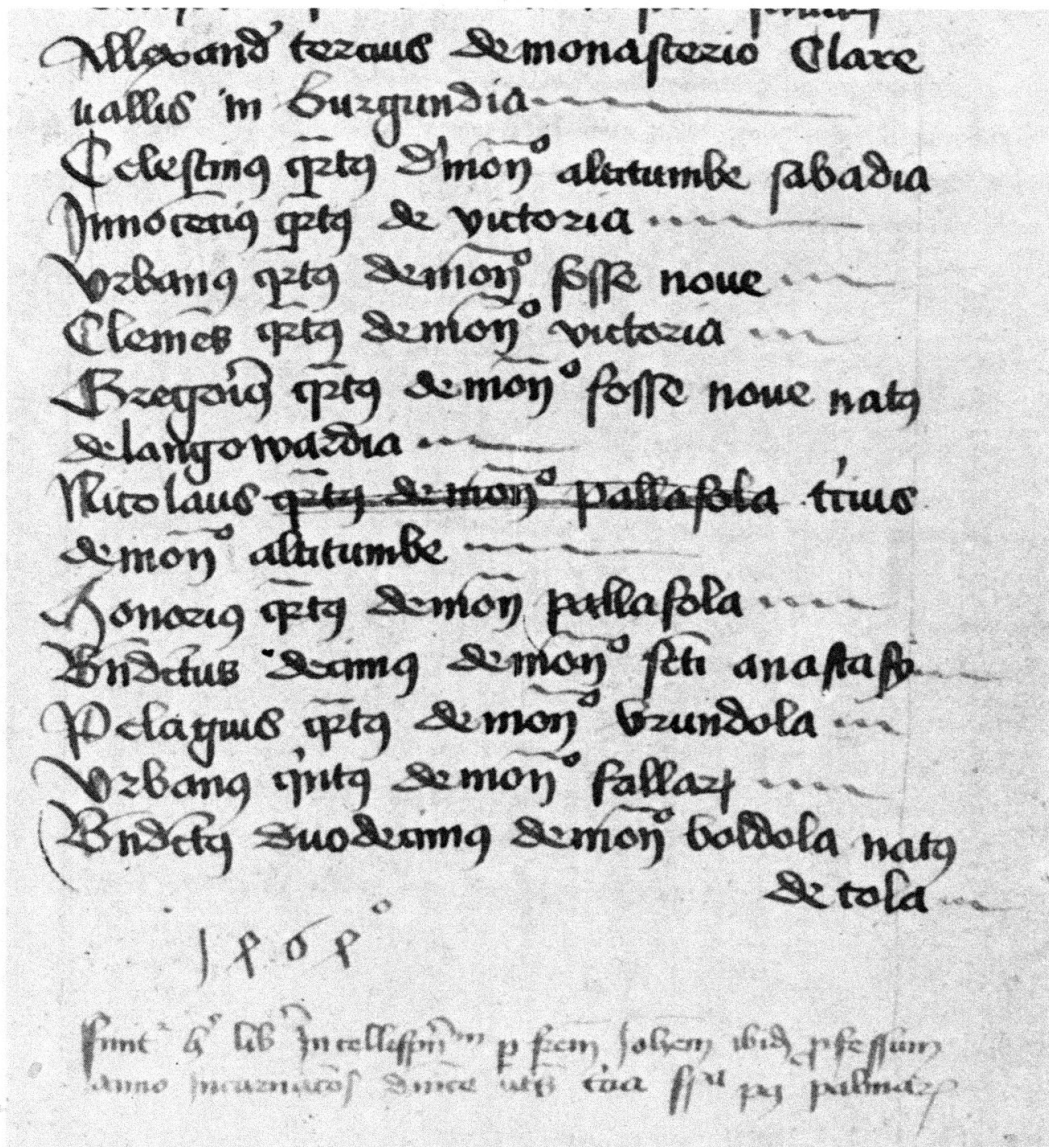 Allexand' tercius de monasterio Clare
uallis in Burgundia
Celestinꝰ qͣrtꝰ d' mon̄º altitumbe sabadia
Innocēciꝰ qͣrtꝰ de victoria
Vrbanꝰ qͣrtꝰ de mon̄º fosse noue
Clemēs qͣrtꝰ de mon̄º victoria
Gregoriꝰ qͣrtꝰ de mon̄º fosse noue natꝰ
de langowardia
Nicolaus qͣrtꝰ de mon̄º pallasola tͨius
de mon̄º altitumbe
Honoriꝰ qͣrtꝰ de mon̄ pallasola
Bn̄dctus decimꝰ de mon̄º scti anastasij
Pelagius qͣrtꝰ de mon̄º vrundola
Vrbanꝰ qⁱntꝰ de mon̄º fallarꝝ
Bn̄dctꝰ duodecimꝰ de mon̄º boldola natꝰ
de tola
1464º
lib' ꝑ frem̄ Joh̄em ibid ꝓfessum
anno Incarnacōs dn̄ice palmarꝝ